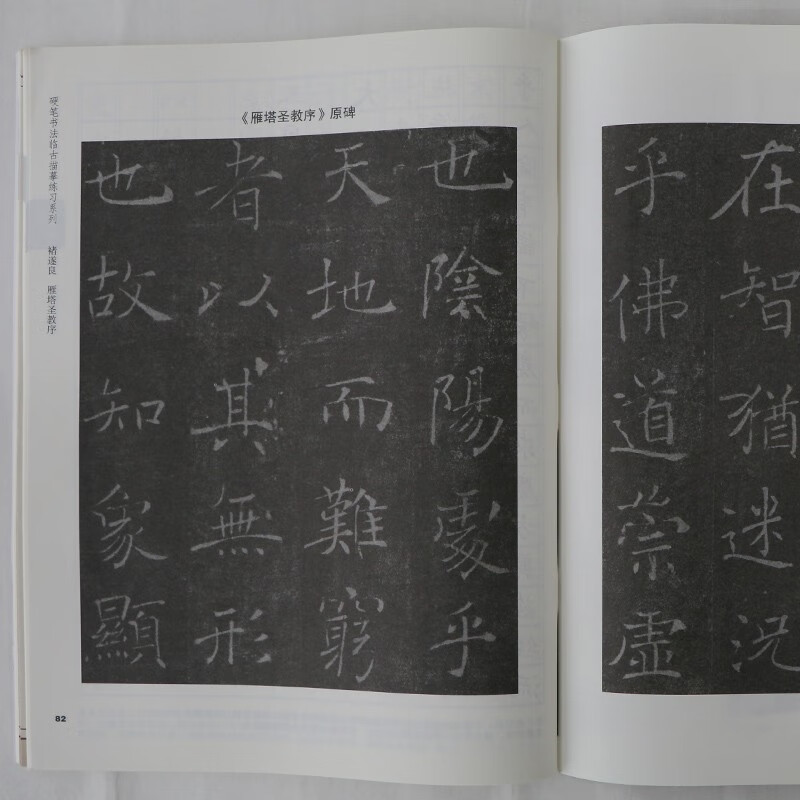 《雁塔圣教序》原碑
也陰陽處乎
天地而難窮
者以其無形
也故知象顯
硬笔书法临古描摹练习系列 褚遂良 雁塔圣教序
82
在智猶迷況
乎佛道崇虛